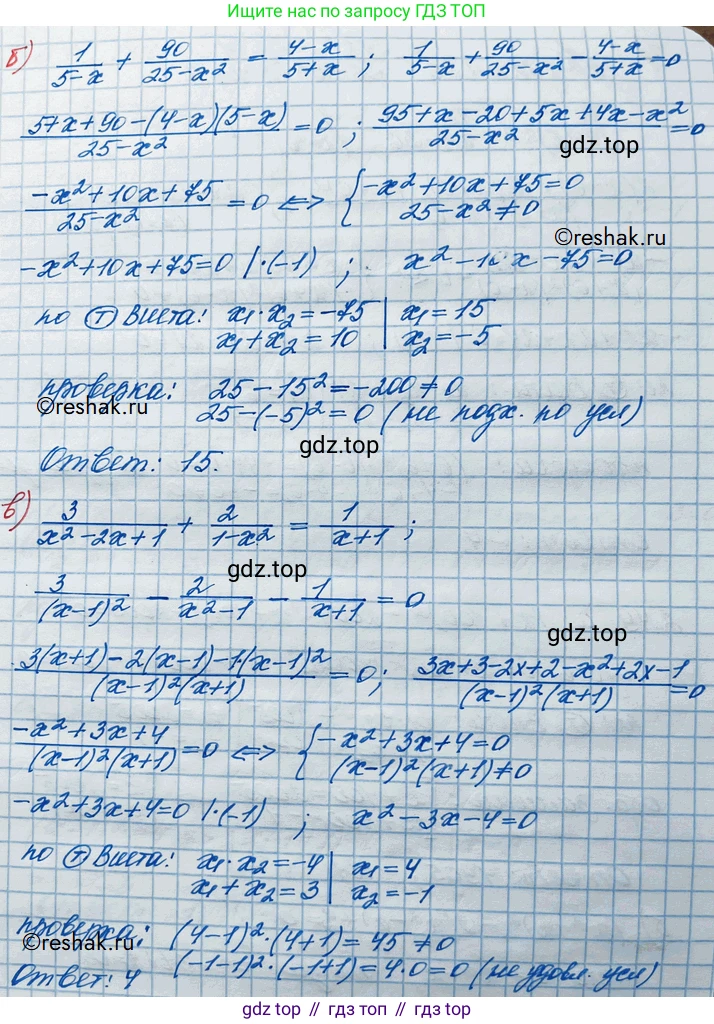 Ищите нас по запросу ГДЗ ТОП
б) 1/(5-x) + 90/(25-x²) = (4-x)/(5+x) ; 1/(5-x) + 90/(25-x²) - (4-x)/(5+x) = 0
(5+x+90-(4-x)(5-x))/(25-x²) = 0 ; (95+x-20+5x+4x-x²)/(25-x²) = 0
gdz.top
(-x²+10x+75)/(25-x²) = 0 <=> { -x²+10x+75=0
25-x²≠0
©reshak.ru
-x²+10x+75=0 |·(-1) ; x²-10x-75=0
по Т Виета: x₁·x₂=-75 | x₁=15
x₁+x₂=10 | x₂=-5
проверка: 25-15²=-200≠0
©reshak.ru
25-(-5)²=0 (не подх. по усл)
gdz.top
Ответ: 15.
в) 3/(x²-2x+1) + 2/(1-x²) = 1/(x+1) ;
gdz.top
3/(x-1)² - 2/(x²-1) - 1/(x+1) = 0
gdz.top
(3(x+1)-2(x-1)-1·(x-1)²)/((x-1)²(x+1)) = 0 ; (3x+3-2x+2-x²+2x-1)/((x-1)²(x+1)) = 0
(-x²+3x+4)/((x-1)²(x+1)) = 0 <=> { -x²+3x+4=0
(x-1)²(x+1)≠0
-x²+3x+4=0 |·(-1) ; x²-3x-4=0
по Т Виета: x₁·x₂=-4 | x₁=4
x₁+x₂=3 | x₂=-1
проверка: (4-1)²·(4+1)=45≠0
©reshak.ru
(-1-1)²·(-1+1)=4·0=0 (не удовл. усл)
Ответ: 4
gdz top // гдз топ // gdz.top